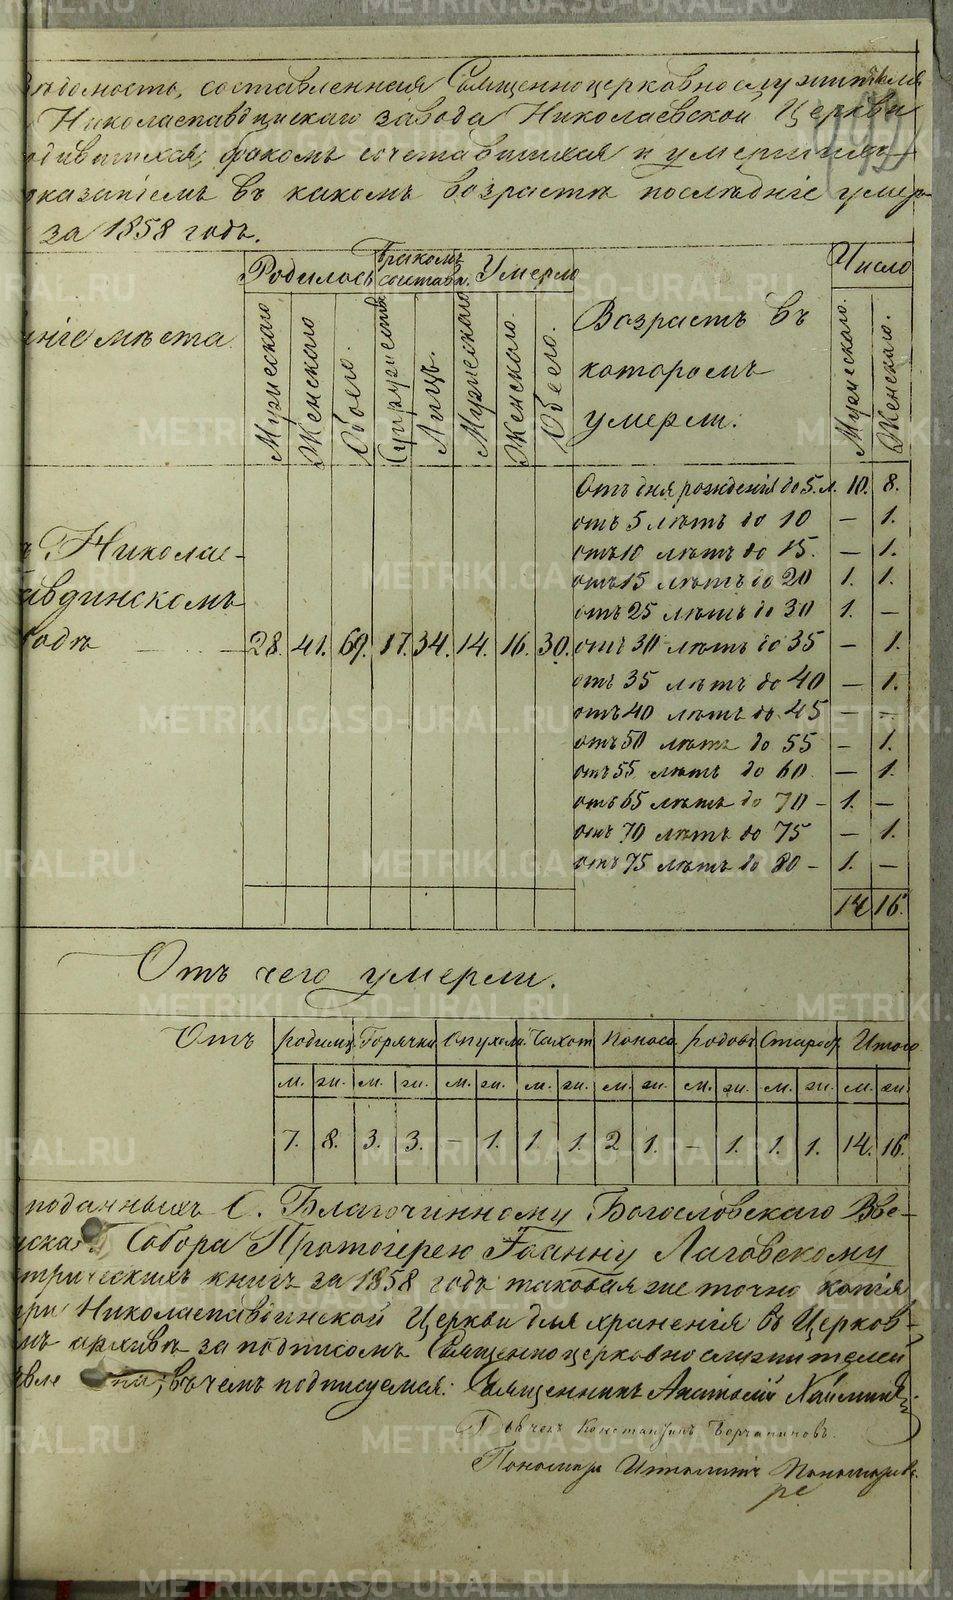 составленная Священноцерковнослужителями
Николаепавдинскаго завода Николаевской Церкви
бракомъ сочетавшихся и умершихъ
въ какомъ возрасте последніе умер-
за 1858 годъ.
Родилось Бракомъ сочетав. Умерло Число
Мужескаго Женскаго Обоего. Супружествъ Лицъ. Мужескаго Женскаго. Обоего. Возрастъ въ которомъ умерли: Мужескаго. Женскаго.
места
Отъ дня рожденія до 5. л. 10. 8.
отъ 5 летъ до 10 — 1.
отъ 10 летъ до 15. — 1.
отъ 15 летъ до 20 1. 1.
отъ 25 летъ до 30 1. —
Николае-
авдинскомъ
28. 41. 69. 17. 34. 14. 16. 30. отъ 30 летъ до 35 — 1.
отъ 35 летъ до 40 — 1.
отъ 40 летъ до 45 — —
отъ 50 летъ до 55 — 1.
отъ 55 летъ до 60 — 1.
отъ 65 летъ до 70 – 1. —
отъ 70 летъ до 75 — 1.
отъ 75 летъ до 80 – 1. —
14 16.
Отъ чего умерли.
Отъ родимц. Горячки Опухоли. Чахот. Поноса родовъ Старос. Итого
м. ж. м. ж. м. ж. м. ж. м. ж. м. ж. м. ж. м. ж.
7. 8. 3. 3. — 1. 1. 1. 2 1. — 1. 1. 1. 14. 16.
поданныхъ О. Благочинному Богословскаго Вве-
Собора Протоіерею Іоанну Лаговскому
книгъ за 1858 годъ таковая же точно копія
при Николаепавдинской Церкви для храненія въ Церков-
архиве за подписомъ Священноцерковнослужителей
въ чемъ подписуемся: Священникъ Анатолій
Константинъ
Пономарь Пономаревъ
METRIKI.GASO-URAL.RU